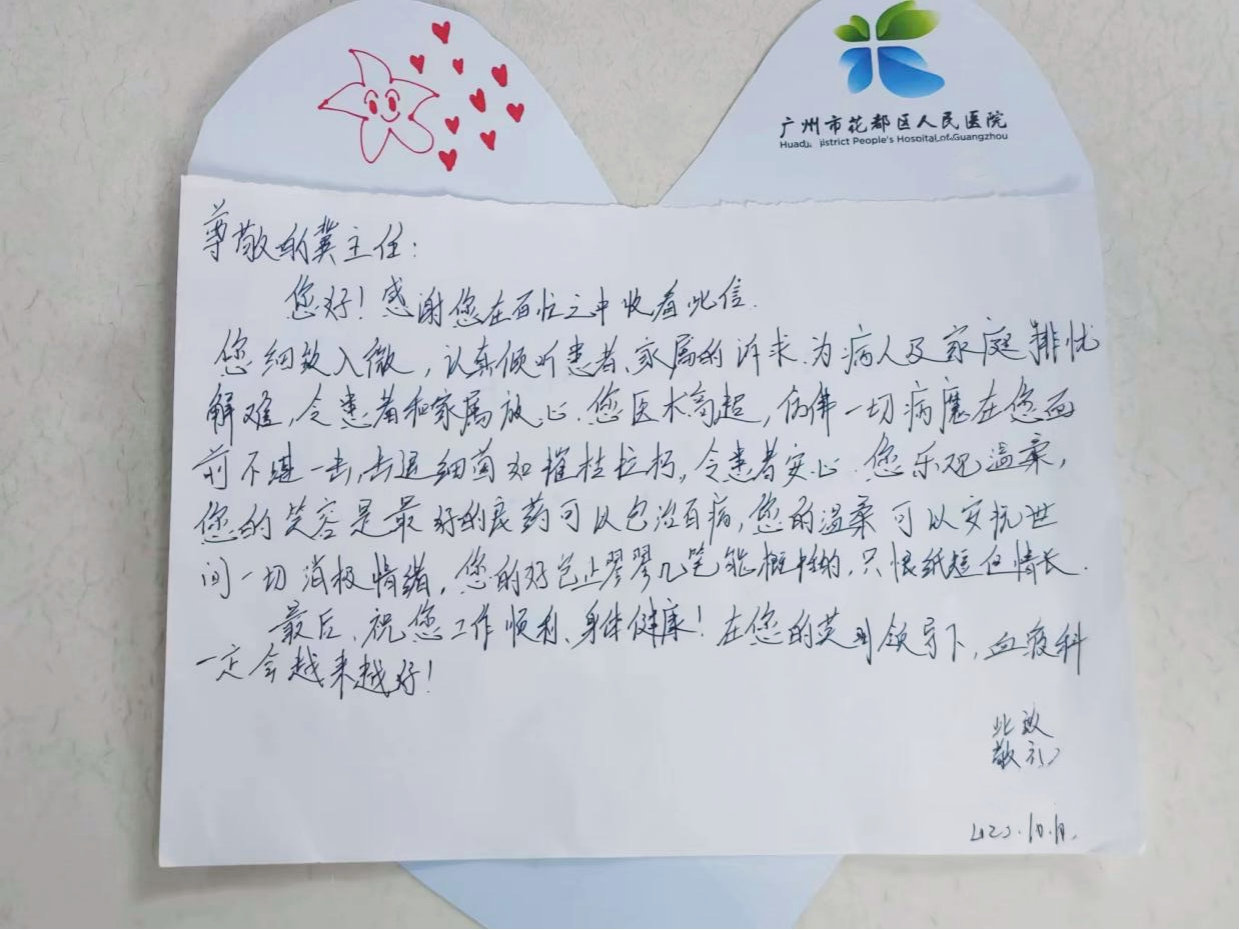 广州市花都区人民医院
District People's Hospital of Guangzhou
尊敬的冀主任：
您好！感谢您在百忙之中收看此信.
您细致入微，认真倾听患者、家属的诉求.为病人及家庭排忧
解难，令患者和家属放心.您医术高超，仿佛一切病魔在您面
前不堪一击,击退细菌如摧枯拉朽，令患者安心.您乐观温柔，
您的笑容是最好的良药可以包治百病，您的温柔可以安抚世
间一切消极情绪，您的好岂止寥寥几笔能概括的，只恨纸短但情长.
最后、祝您工作顺利、身体健康！在您的英明领导下，血液科
一定会越来越好！
此致
敬礼